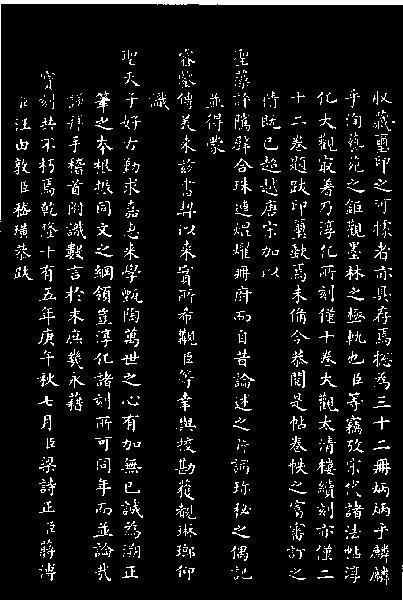 收藏璽印之可據者亦具存焉總為三十二冊炳炳乎麟麟
乎洵藝苑之鉅觀墨林之極軌也臣等竊攷宋代諸法帖淳
化大觀最著乃淳化所刻僅十卷大觀太清樓續刻亦僅二
十二卷題跋印璽歉焉未備今恭閱是帖卷帙之富審訂之
精既已超越唐宋加以
聖藻評隲辟合珠連焜燿冊府而自昔論述之片詞珍秘之偶記
並得蒙
睿鑒傳美來茲書契以來實所希覯臣等幸與挍勘獲觀琳瑯仰
識
聖天子好古勤求嘉惠來學甄陶萬世之心有加無已誠為溯正
筆之本根挈同文之綱領豈淳化諸刻所可同年而並論哉
謹拜手稽首附識數言於末庶幾永藉
寶刻共不朽焉乾隆十有五年庚午秋七月臣梁詩正臣蔣溥
臣汪由敦臣嵇璜恭跋